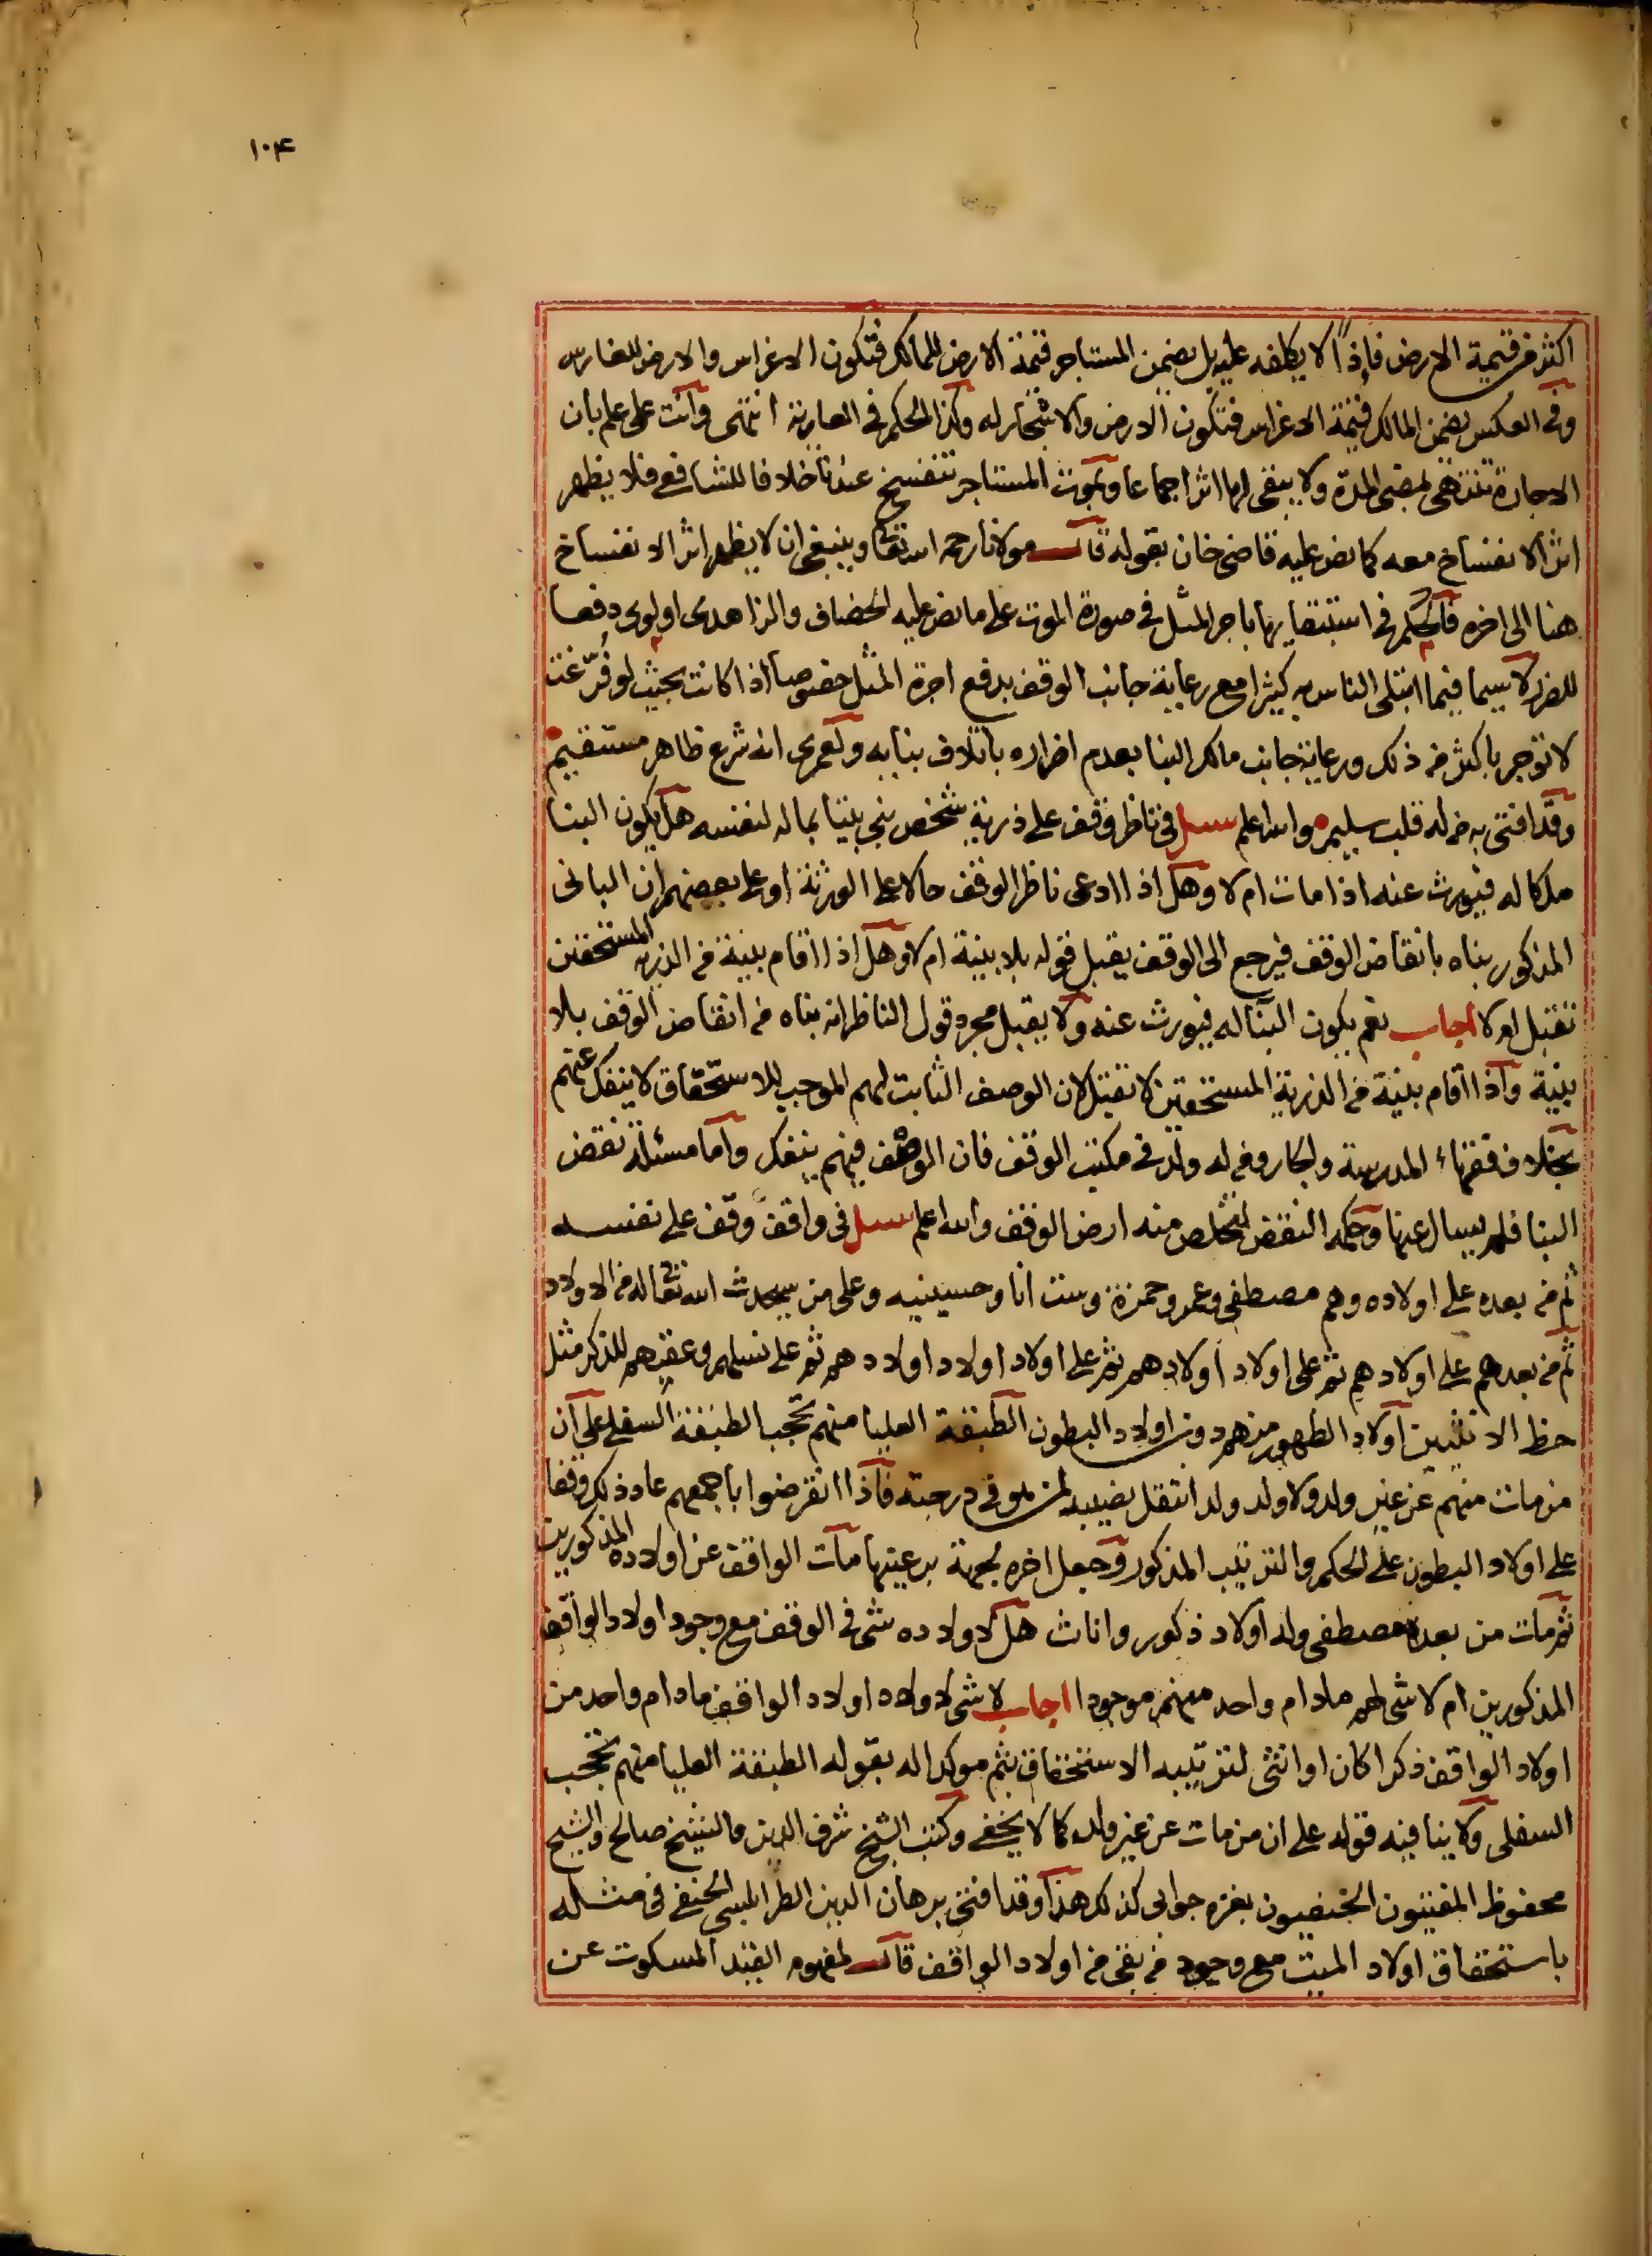 ١٠٤
اكثر من قيمة الارض فإذاً لا يكلفه عليه بل يضمن المستاجر قيمة الارض للمالك فتكون الاغراس والارض للغارس
وفي العكس يضمن المالك قيمة الاغراس فتكون الارض والاشجار له وكذا الحكم في العارية انتهى وانت على علم بان
الاجارة تنتهي بمضي المدة ولا يبقى لها اثر اجماعا وبموت المستاجر تنفسخ عندنا خلافا للشافعي فلا يظهر
اثر الانفساخ معه كما نص عليه قاضي خان بقوله قال مولانا رحمه الله تعالى وينبغي ان لا يظهر اثر الانفساخ
هنا الى اخره فالحكم في استبقايها باجر المثل في صورة الموت على ما نص عليه الخصاف والزاهدى اولوى دفعا
للضرر لاسيما فيما ابتلى الناس به كثيرا مع رعاية جانب الوقف بدفع اجرة المثل خصوصا اذا كانت بحيث لو فُرّغت
لا توجر باكثر من ذلك ورعاية جانب مالك البنا بعدم اضراره باتلاف بنايه ولعمرى انه شرع ظاهر مستقيم
وقد افتى به من له قلب سليم والله اعلم سيل في ناظر وقف على ذرية شخص بنى بيتا بماله لنفسه هل يكون البنا
ملكا له فيورث عنه اذا مات ام لا وهل اذا ادعى ناظر الوقف حالا على الورثة او على بعضهم ان البانى
المذكور بناه بانقاض الوقف فيرجع الى الوقف يقبل قوله بلا بينة ام لا وهل اذا اقام بينة من الذرية المستحقين
تقبل ام لا اجاب نعم يكون البنا له فيورث عنه ولا يقبل مجرد قول الناظر انه بناه من انقاض الوقف بلا
بينة واذا اقام بينة من الذرية المستحقين لا تقبل لان الوصف الثابت لهم الموجب للاستحقاق لا ينفك عنهم
بخلاف فقهاء المدرسة والجار ومن له ولد في مكتب الوقف فان الوصف فيهم ينفك واما مسئلة نقض
البنا فلم يسال عنها وحكمه النقض لتخلص منه ارض الوقف والله اعلم سيل في واقف وقف على نفسه
ثم من بعده على اولاده وهم مصطفى وعمر وحمزة وست انا وحسينيه وعلى من سيحدث الله تعالى له من الاولاد
ثم من بعدهم على اولادهم ثم على اولاد اولادهم ثم على اولاد اولاد اولادهم ثم على نسلهم وعقبهم للذكر مثل
حظ الانثيين اولاد الظهور منهم دون اولاد البطون الطبقة العليا منهم تحجب الطبقة السفلى على ان
من مات منهم عن غير ولد ولا ولد ولد انتقل نصيبه لمن هو في درجته فاذا انقرضوا باجمعهم عاد ذلك وقفا
على اولاد البطون على الحكم والترتيب المذكور وجعل اخره لجهة بر عينها مات الواقف عن اولاده المذكورين
ثم مات من بعده مصطفى وله اولاد ذكور واناث هل لاولاده شى في الوقف مع وجود اولاد الواقف
المذكورين ام لا شى لهم مادام واحد منهم موجودا اجاب لا شى لاولاد اولاد الواقف مادام واحد من
اولاد الواقف ذكرا كان او انثى لترتيبه الاستحقاق بثم موكدا له بقوله الطبقة العليا منهم تحجب
السفلى ولا ينافيه قوله على ان من مات عن غير ولد كما لا يخفى وكتب الشيخ شرف الدين والشيخ صالح والشيخ
محفوظ المفتيون الحنفيون بغزه جوابى كذلك هذا وقد افتى برهان الدين الطرابلسي الحنفى في مثله
باستحقاق اولاد الميت مع وجود من بقى من اولاد الواقف قال لمفهوم القيد المسكوت عن